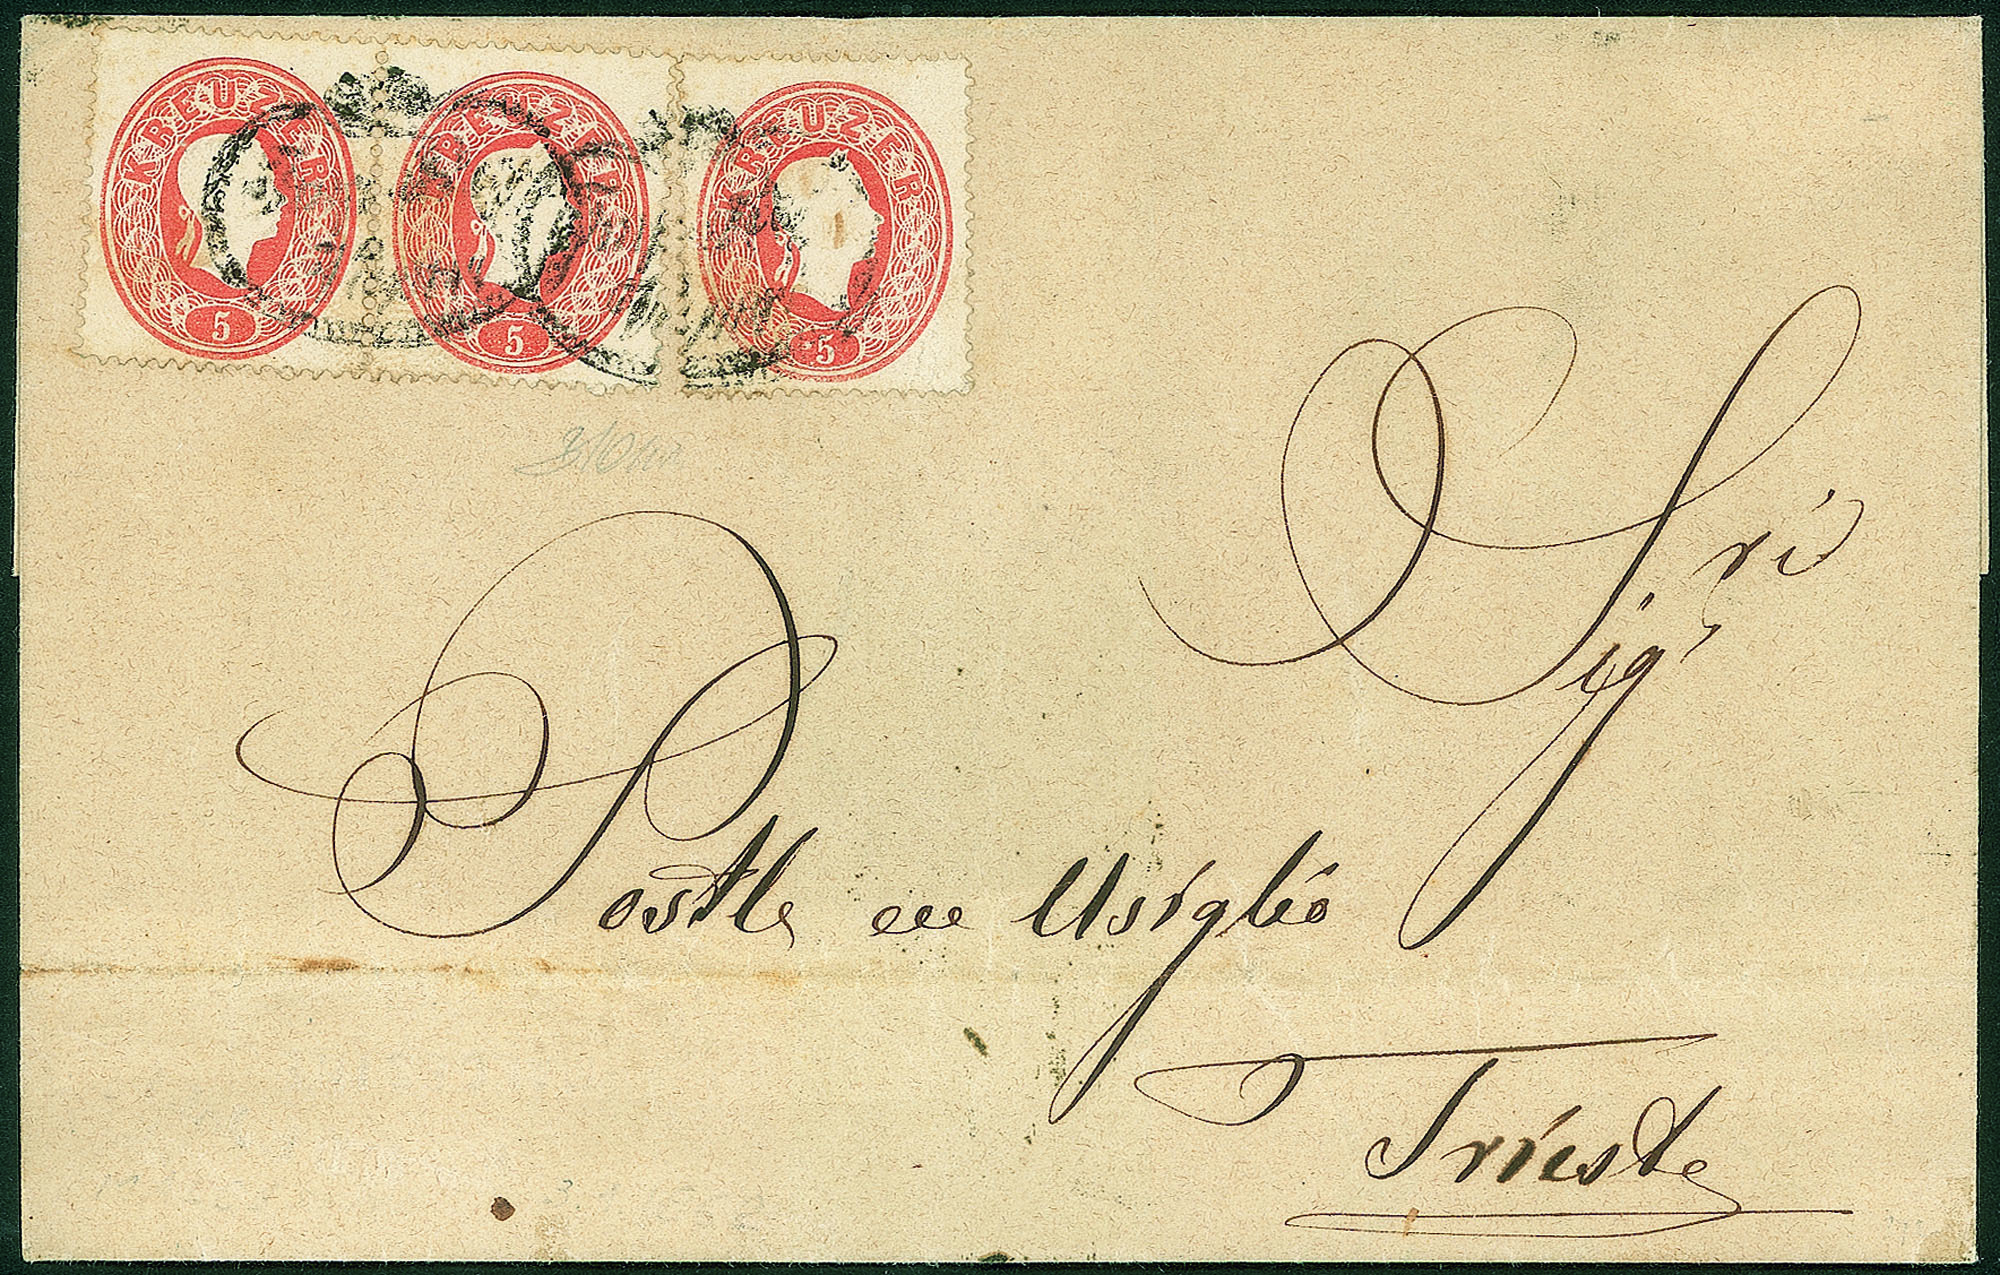 KREUZER KREUZER KREUZER
5 5 5
Sigri
Postle en Usiglio
Trieste